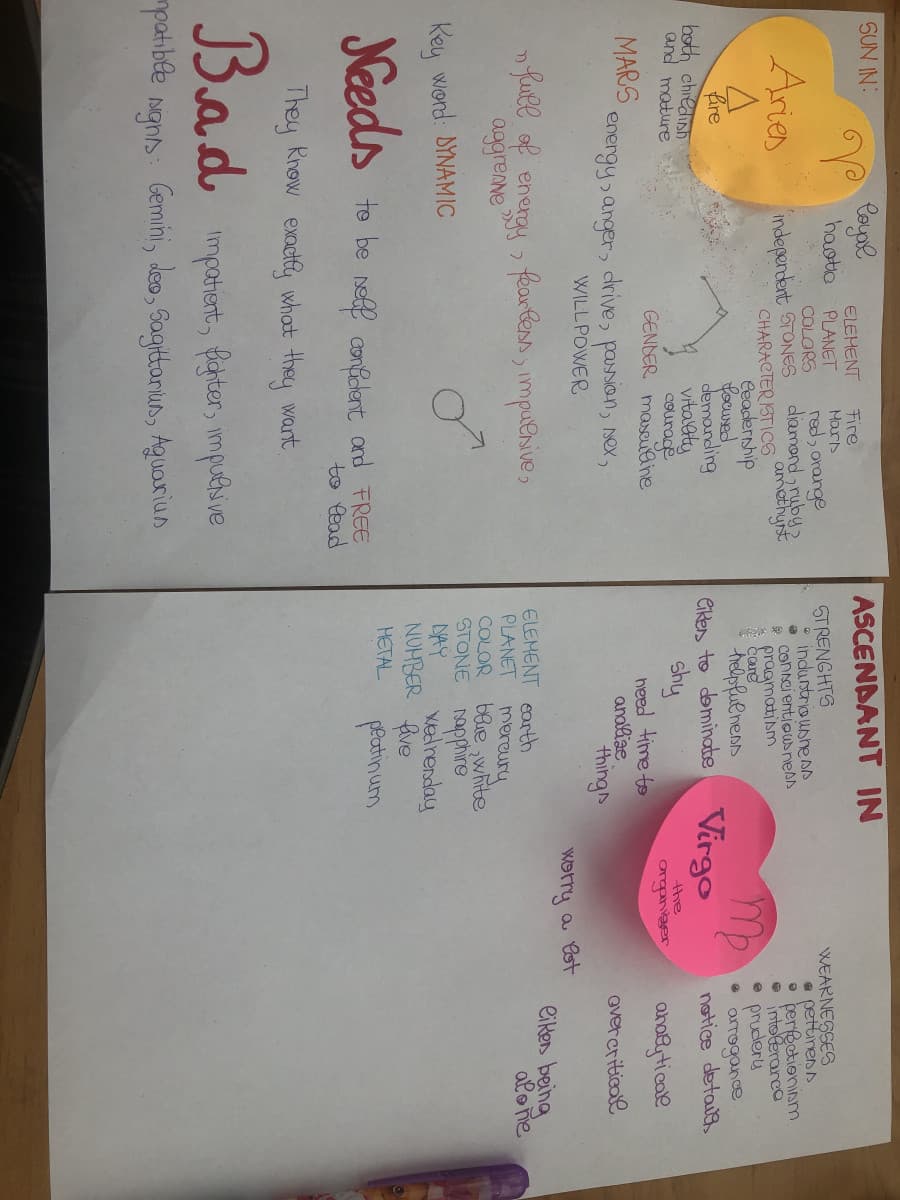 SUN IN:
Aries
fire
loyal
independent
both childish
and mature
ELEMENT Fire
PLANET Mars
COLORS red, orange
STONES diamond, ruby,
amethyst
CHARACTERISTICS
leadership
focused
demanding
vitality
courage
GENDER masculine
MARS energy, anger, drive, passion, sex,
WILLPOWER
"full of energy, fearless, impulsive,
aggresive"
Key word: DYNAMIC
Needs to be self confident and FREE
to lead
They know exactly what they want.
Bad impatient, fighter, impulsive
mpatible signs: Gemini, Leo, Sagittarius, Aquarius
ASCENDANT IN
STRENGHTS
industriousness
conscientiousness
pragmatism
care
helpfulness
WEAKNESSES
pettiness
perfectionism
intolerance
prudery
arrogance
Virgo
the
organiser
likes to dominate
shy
need time to
analise
things
worry a lot
notice details
analytical
overcritical
likes being
alone
ELEMENT earth
PLANET mercury
COLOR blue, white
STONE sapphire
DAY wednesday
NUMBER five
METAL platinum